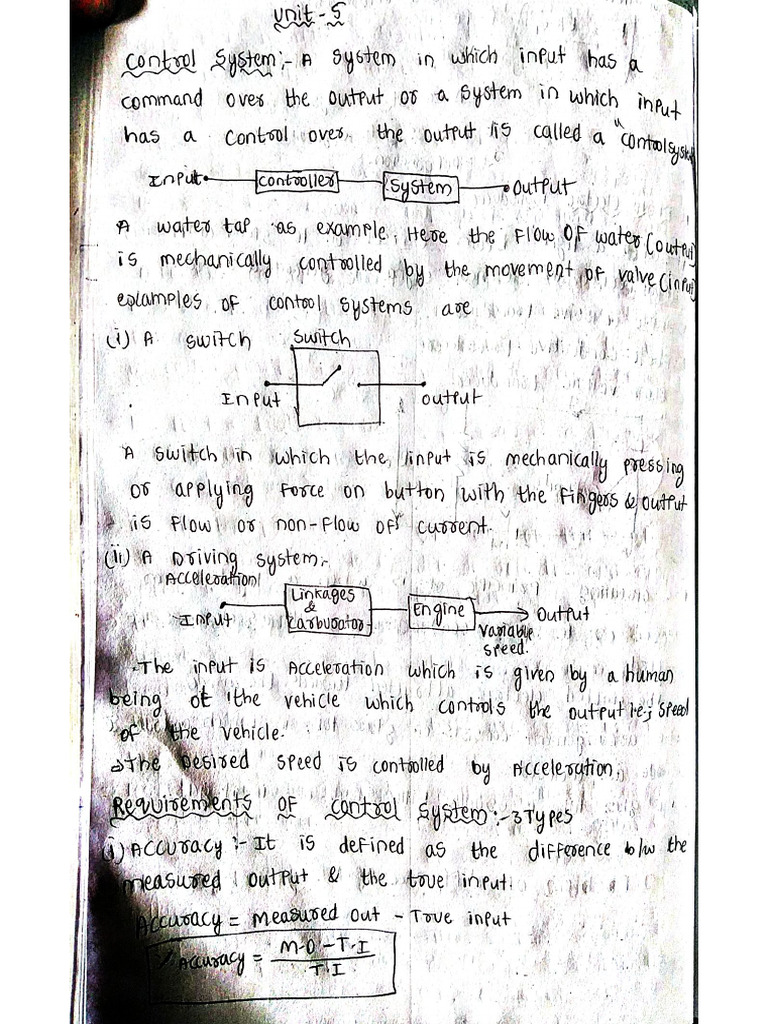 Unit - 5
Control System:- A system in which input has a
command over the output or a system in which input
has a control over the output is called a "control system
Input Controller System Output
A water tap as example. Here the flow of water (output)
is mechanically controlled by the movement of valve (input)
examples of control systems are
(i) A switch Switch
Input output
A switch in which the input is mechanically pressing
or applying force on button with the fingers & output
is flow or non-flow of current.
(ii) A Driving system:-
Acceleration
Input Linkages & carburator Engine Output
variable speed.
The input is Acceleration which is given by a human
being of the vehicle which controls the output i.e; speed
of the vehicle.
The Desired speed is controlled by Acceleration.
Requirements of control system:- 3 Types
(i) Accuracy:- It is defined as the difference b/w the
measured output & the true input.
Accuracy = Measured out - True input
% Accuracy = M.O - T.I / T.I